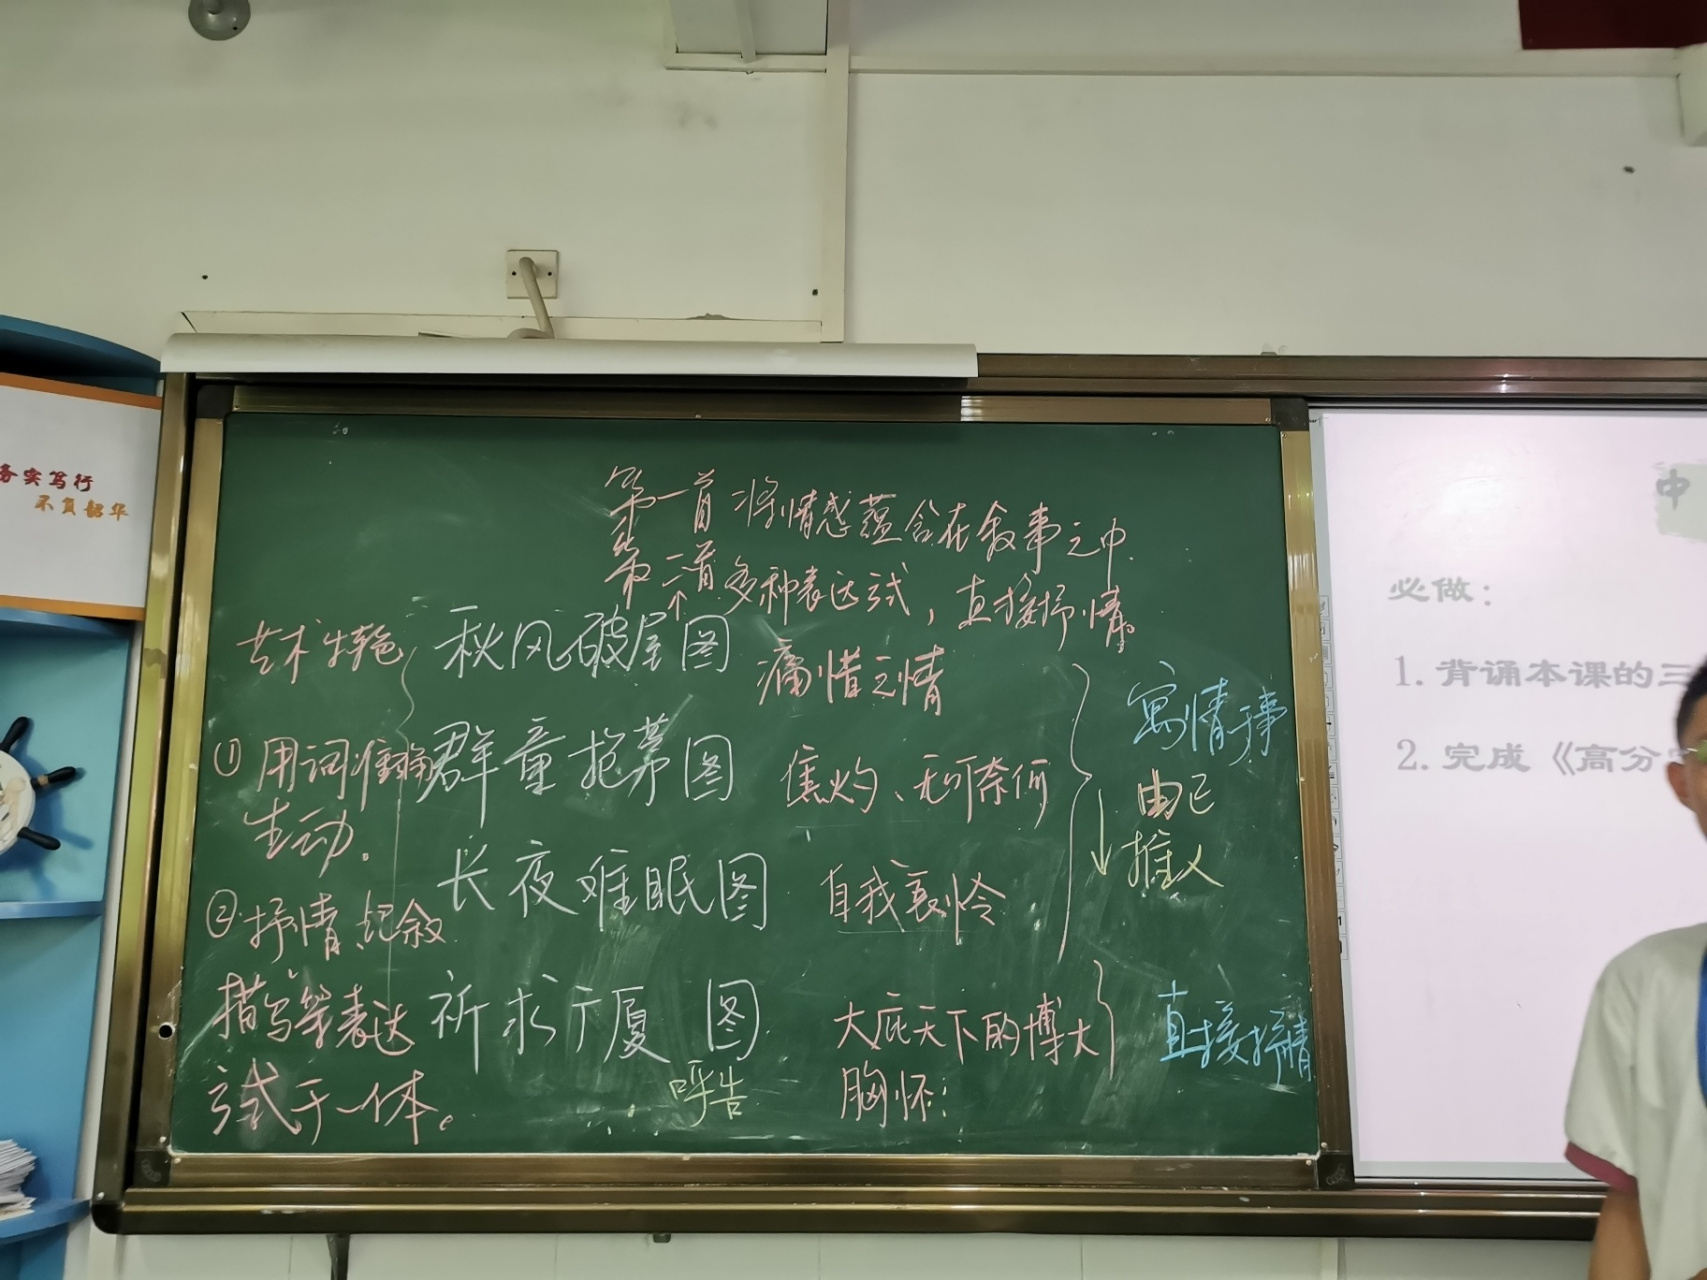 务实笃行
不负韶华
第一首 将情感蕴含在叙事之中.
第二首 多种表达式，直接抒情。
个
艺术特色
秋风破屋图 痛惜之情
寓情于事
① 用词准确
生动.
群童抱茅图 焦灼、无可奈何
由己
推人
长夜难眠图 自我哀怜
② 抒情、记叙
描写等表达
式于一体。
祈求广厦 图 大庇天下的博大
胸怀:
呼告
直接抒情
中
必做：
1. 背诵本课的三
2. 完成《高分